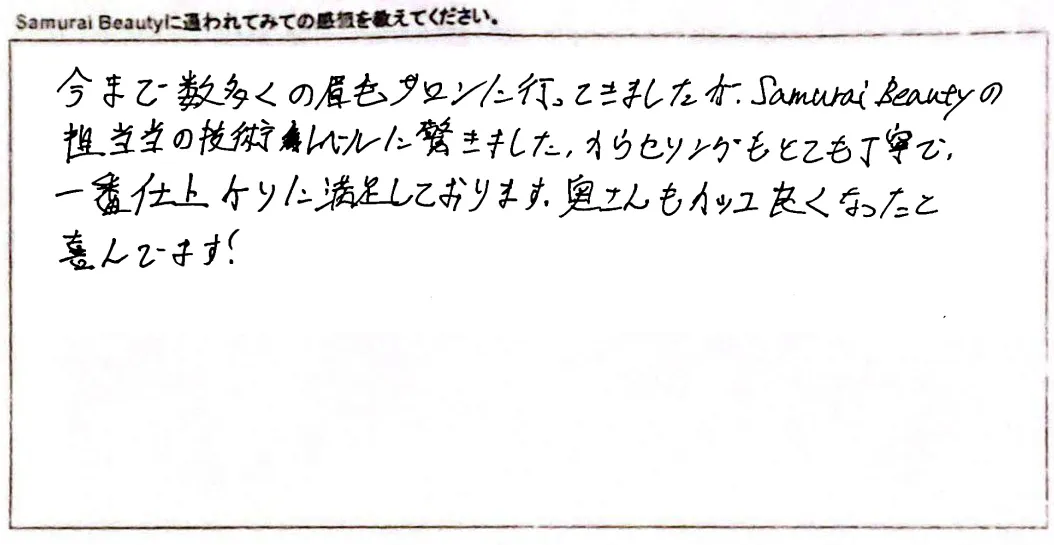 Samurai Beautyに通われてみての感想を教えてください。
今まで数多くの眉毛サロンに行ってきましたが、Samurai Beautyの
担当当の技術レベルに驚きました。カウンセリングもとても丁寧で、
一番仕上がりに満足しております。奥さんもカッコ良くなったと
喜んでます!